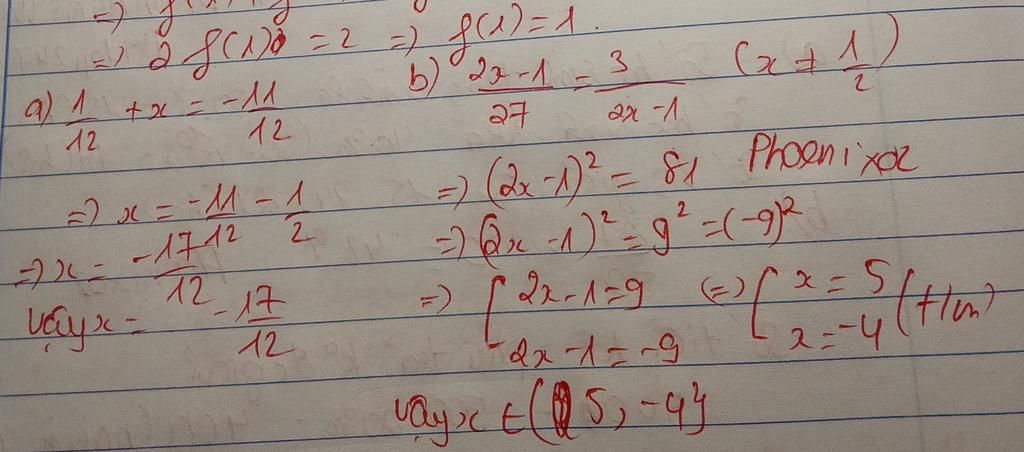 => 2 f(1) = 2 => f(1) = 1.
a) 1/12 + x = -11/12
=> x = -11/12 - 1/2
=> x = -17/12
Vậy x = -17/12
b) (2x-1)/27 = 3/(2x-1) (x ≠ 1/2)
=> (2x-1)² = 81 Phoenixoz
=> (2x-1)² = 9² = (-9)²
=> [ 2x-1=9 (=> [ x = 5
2x-1=-9 x = -4 (t/m)
Vậy x ∈ {5, -4}